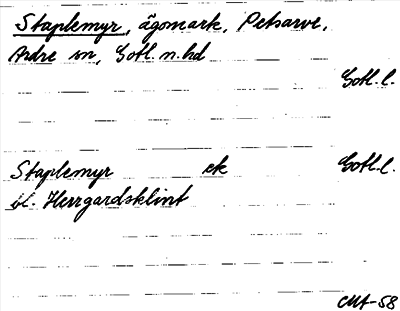 Staplemyr, ägomark, Petsarve,
Ardre sn, Gotl. n. hd
Gotl. l.
Staplemyr ek Gotl. l.
bl. Herrgardsklint
CMA-58